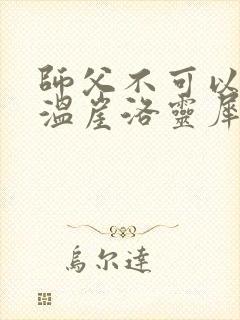 師父不可以
溫崖洛靈犀
烏尔達